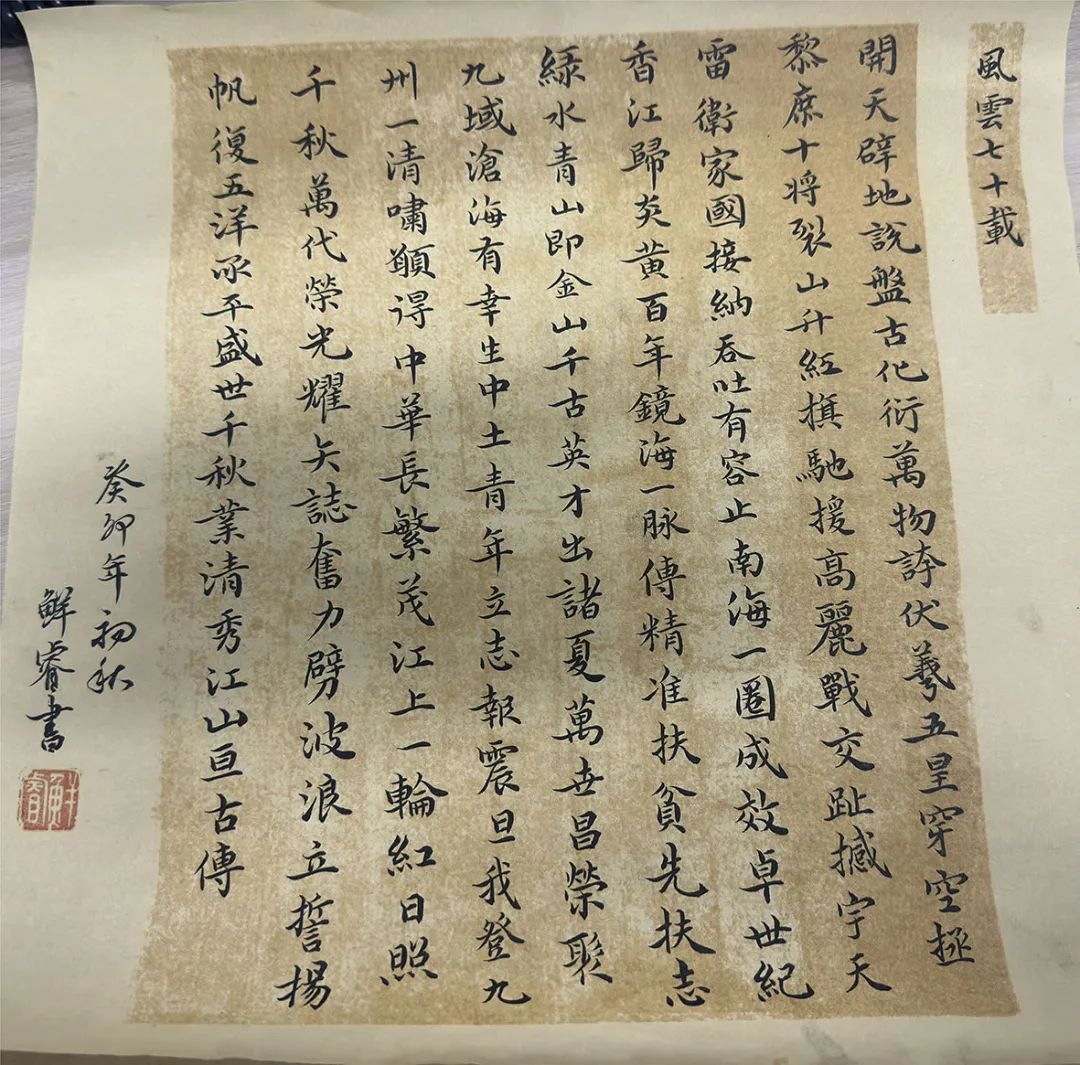 風雲七十載
開天辟地説盤古化衍萬物誇伏羲五皇穿空拯
黎庶十将裂山升紅旗馳援高麗戰交趾撼宇天
雷衛家國接納吞吐有容止南海一圈成效卓世紀
香江歸炎黃百年鏡海一脉傳精准扶貧先扶志
緑水青山即金山千古英才出諸夏萬世昌榮聚
九域滄海有幸生中土青年立志報震旦我登九
州一清嘯願得中華長繁茂江上一輪紅日照
千秋萬代榮光耀矢誌奮力劈波浪立誓揚
帆復五洋承平盛世千秋業清秀江山亘古傳
癸卯年初秋
鮮睿書
鮮睿